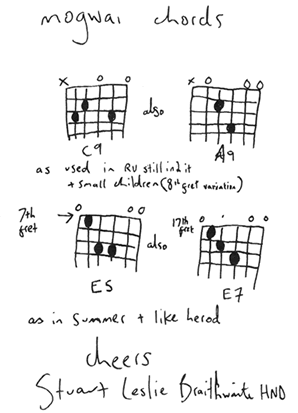 mogwai chords
x o o
also
x o o o
C9
A9
as used in RU still in it
+ small children (8th fret variation)
7th fret
o o o
also
17th fret
o o o
E5
E7
as in summer + like herod
cheers
Stuart Leslie Braithwaite HND